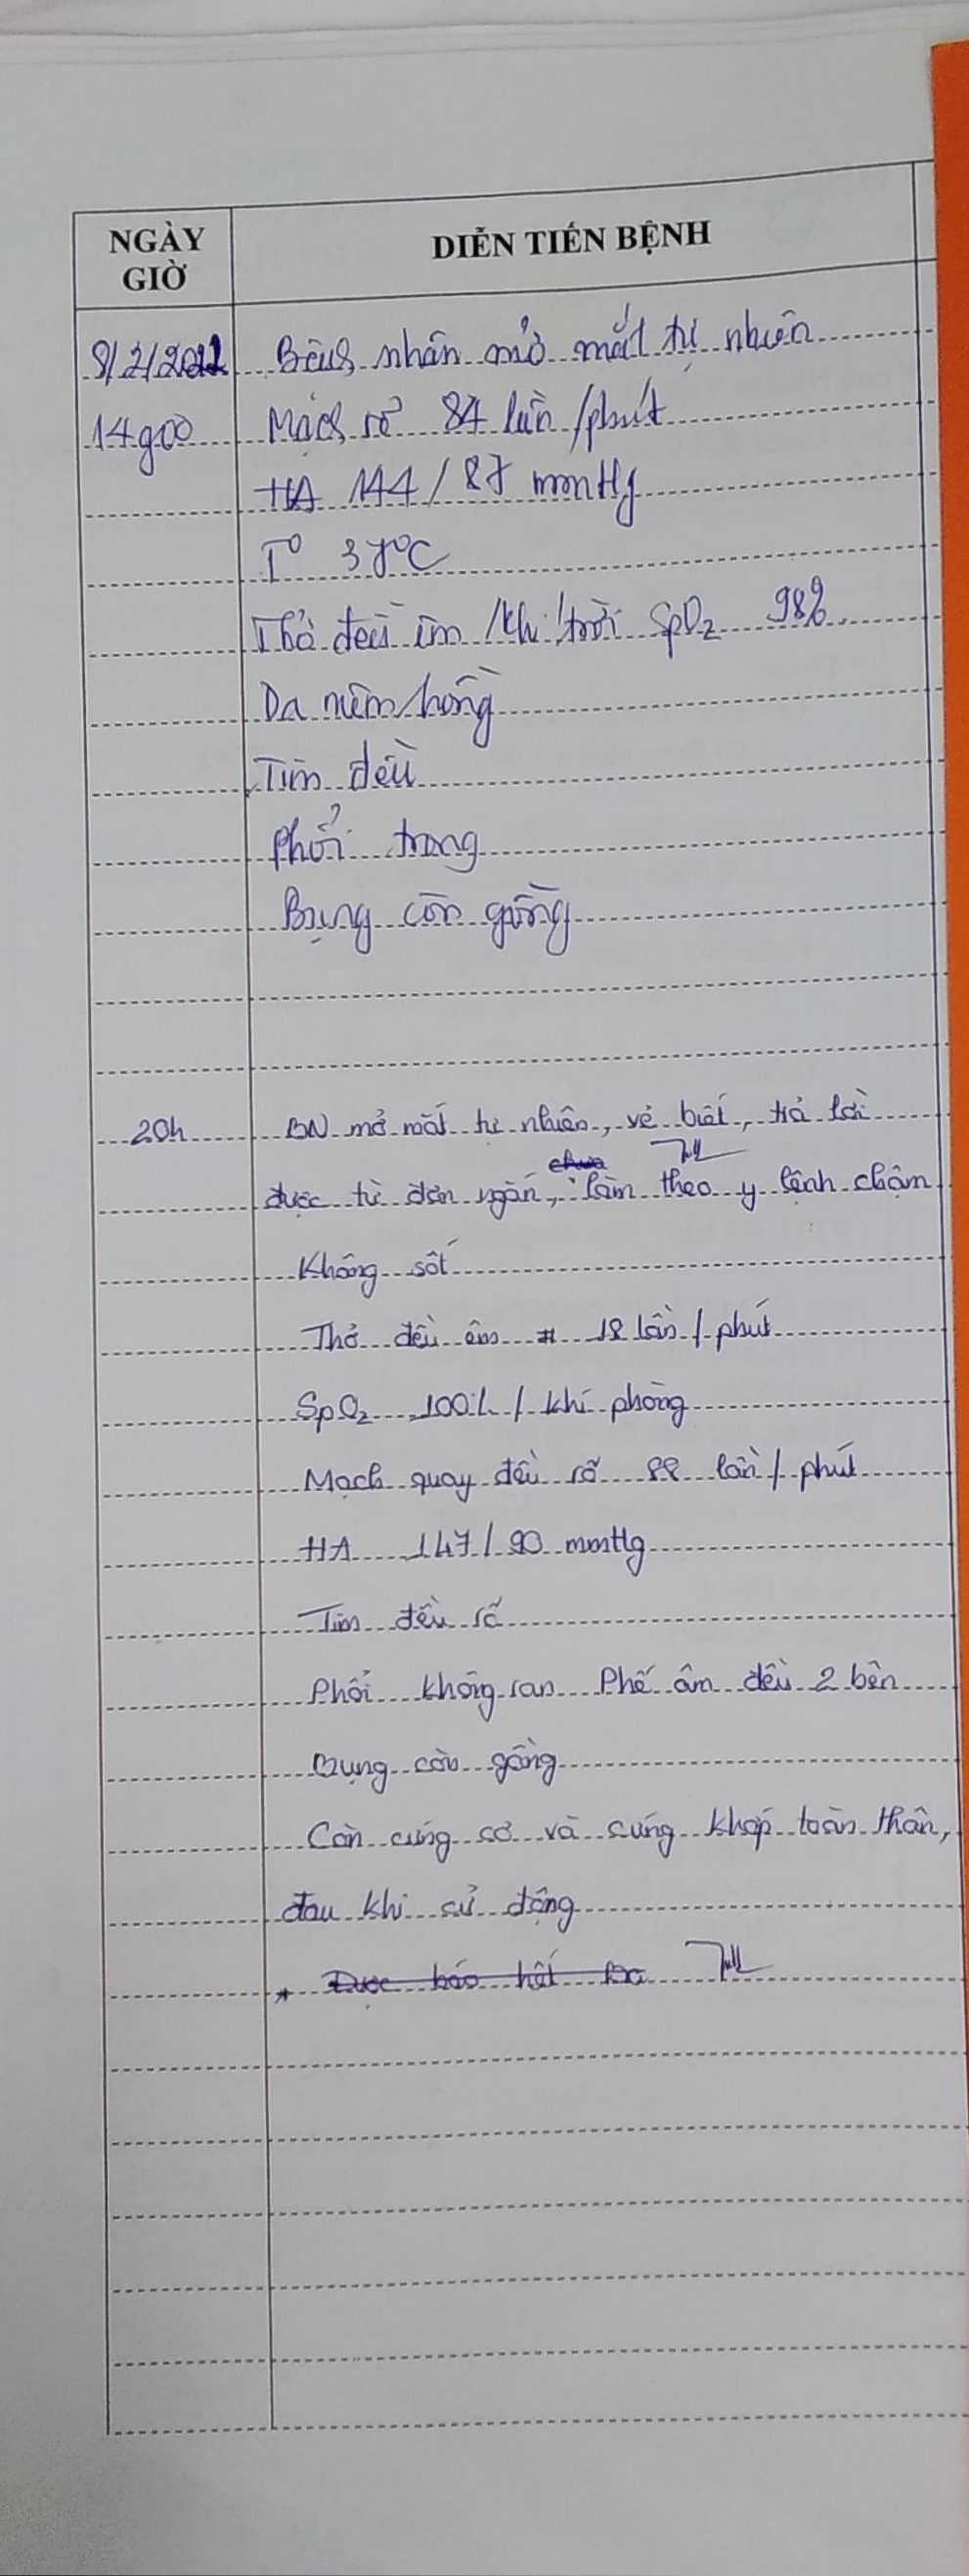 NGÀY
GIỜ
DIỄN TIẾN BỆNH
8/2/2022 Bệnh nhân mở mắt tự nhiên
14g00 Mạch rõ 84 lần/phút
HA 144/87 mmHg
T° 37°C
Thở đều êm /khí trời SpO2 98%
Da niêm hồng
Tim đều
Phổi trong
Bụng còn gồng
20h BN mở mắt tự nhiên, vẻ biết, trả lời
được từ đơn ngắn, chưa làm theo y lệnh chậm
Không sốt
Thở đều êm # 18 lần / phút
SpO2 100% / khí phòng
Mạch quay đều rõ 88 lần / phút
HA 147 / 90 mmHg
Tim đều rõ
Phổi không ran Phế âm đều 2 bên
Bụng còn gồng
Còn cứng cơ và cứng khớp toàn thân,
đau khi cử động
* Được báo hết